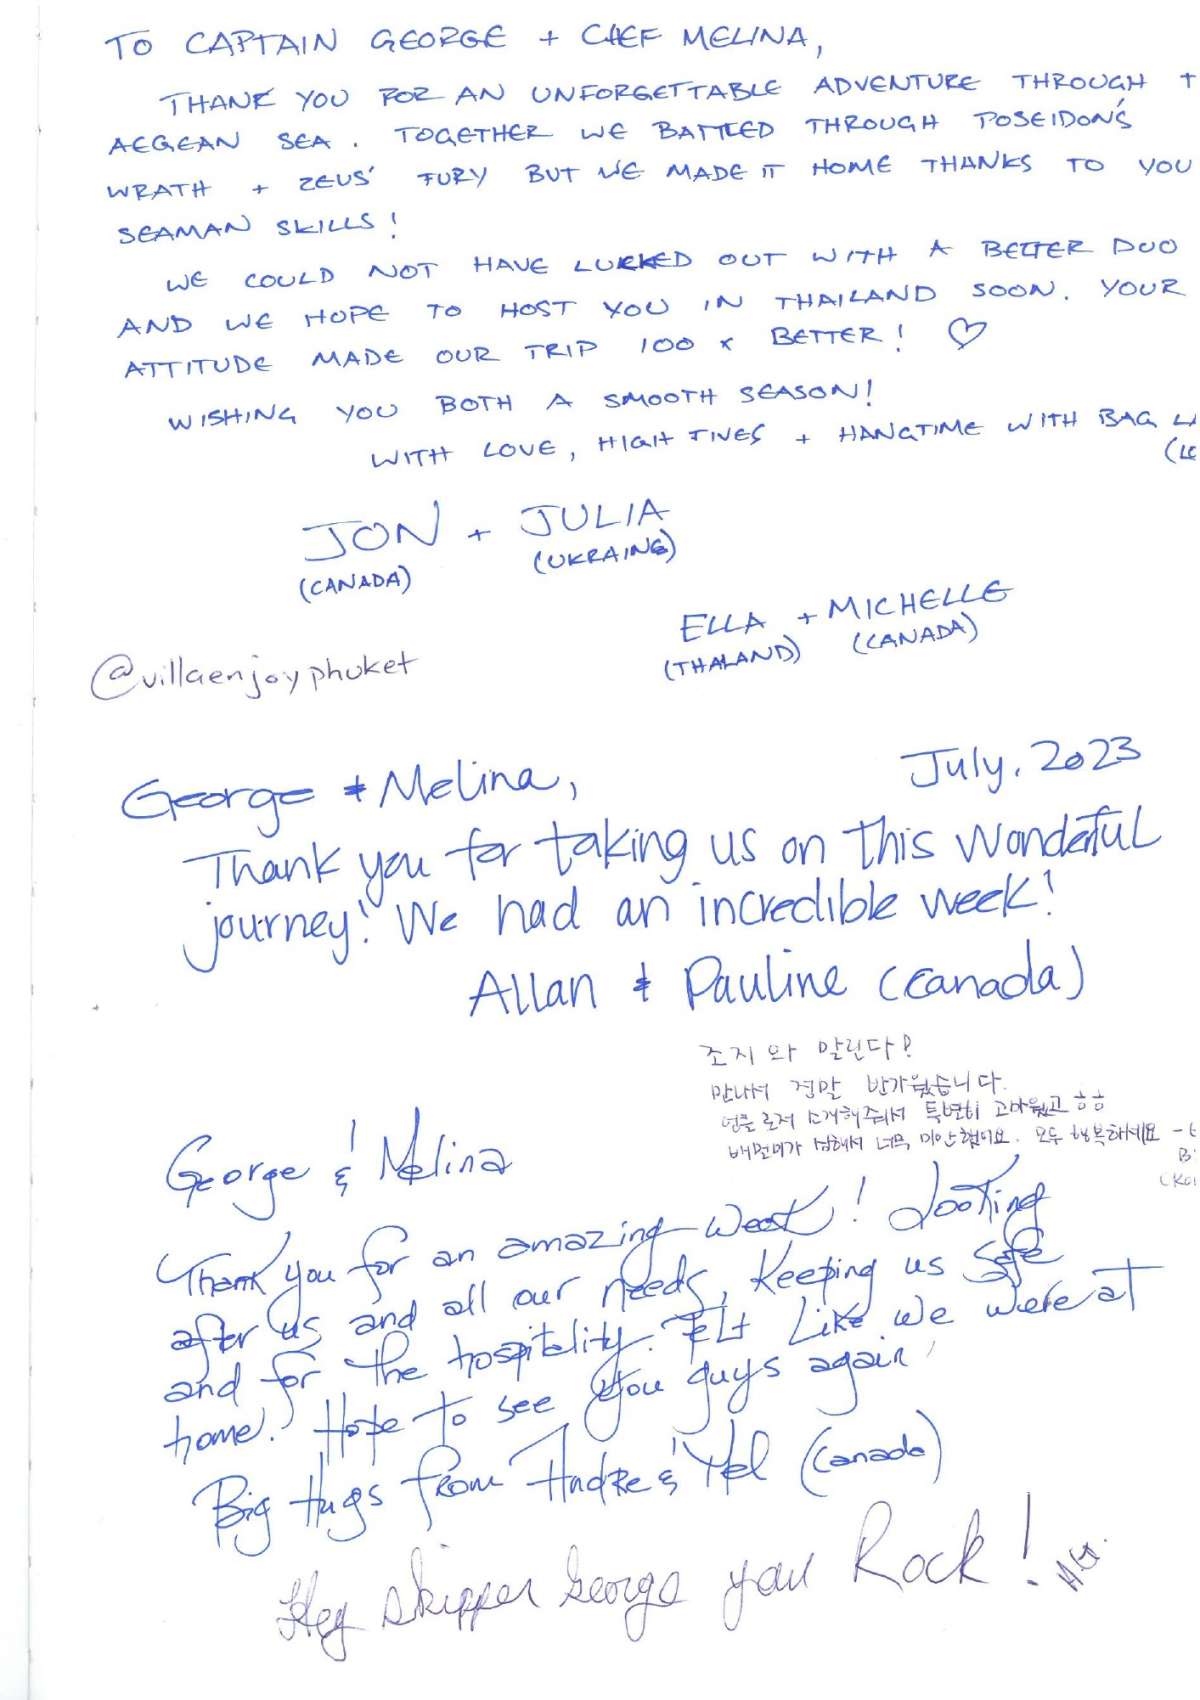 TO CAPTAIN GEORGE + CHEF MELINA,
THANK YOU FOR AN UNFORGETTABLE ADVENTURE THROUGH
AEGEAN SEA. TOGETHER WE BATTLED THROUGH POSEIDON'S
WRATH + ZEUS' FURY BUT WE MADE IT HOME THANKS TO YOU
SEAMAN SKILLS!
WE COULD NOT HAVE LUCKED OUT WITH A BETTER DUO
AND WE HOPE TO HOST YOU IN THAILAND SOON. YOUR
ATTITUDE MADE OUR TRIP 100 x BETTER! ♡
WISHING YOU BOTH A SMOOTH SEASON!
WITH LOVE, HIGH FIVES + HANGTIME WITH BAG
JON + JULIA
(CANADA) (UKRAINE)
ELLA + MICHELLE
(THAILAND) (CANADA)
@villaenjoyphuket
July, 2023
George & Melina,
Thank you for taking us on this wonderful
journey! We had an incredible week!
Allan & Pauline (Canada)
조지와 말린다!
만나서 정말 반가웠습니다.
소개해줘서 특별히 고마웠고 ㅎㅎ
배멀미가 심해서 너무 미안했어요. 모두 행복하세요
George & Melina
Thank you for an amazing week! Looking
after us and all our needs, Keeping us safe
and for the hospitality. Felt Like we were at
home. Hope to see you guys again!
Big Hugs from Andre & Mel (Canada)
Hey skipper George you Rock!